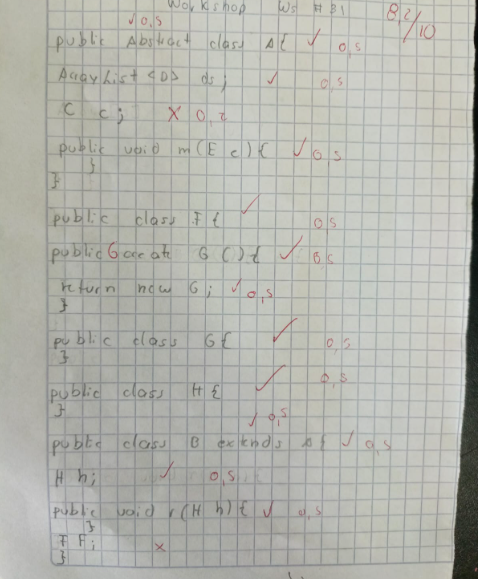 Workshop WS # 31 8,2/10
✓ 0,5
public Abstract class A{ ✓ 0,5
ArrayList <D> ds; ✓ 0,5
C c; X 0,2
public void m(E e){ ✓ 0,5
}
}
public class F{ ✓ 0,5
public G create G(){ ✓ 0,5
return new G; ✓ 0,5
}
public class G{ ✓ 0,5
}
public class H{ ✓ 0,5
}
✓ 0,5
public class B extends A{ ✓ 0,5
H h; ✓ 0,5
public void r(H h){ ✓ 0,5
}
F F; x
}